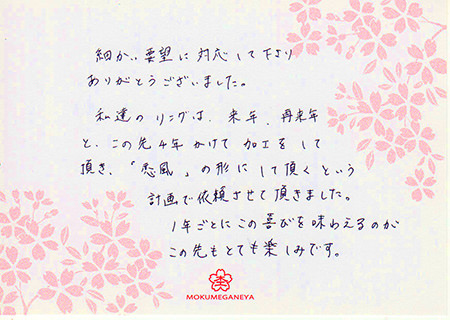 細かい要望に対応して下さり
ありがとうございました。
私達のリングは、来年、再来年
と、この先4年かけて加工をして
頂き、「恋風」の形にして頂くという
計画で依頼させて頂きました。
1年ごとにこの喜びを味わえるのが
この先もとても楽しみです。
MOKUMEGANEYA